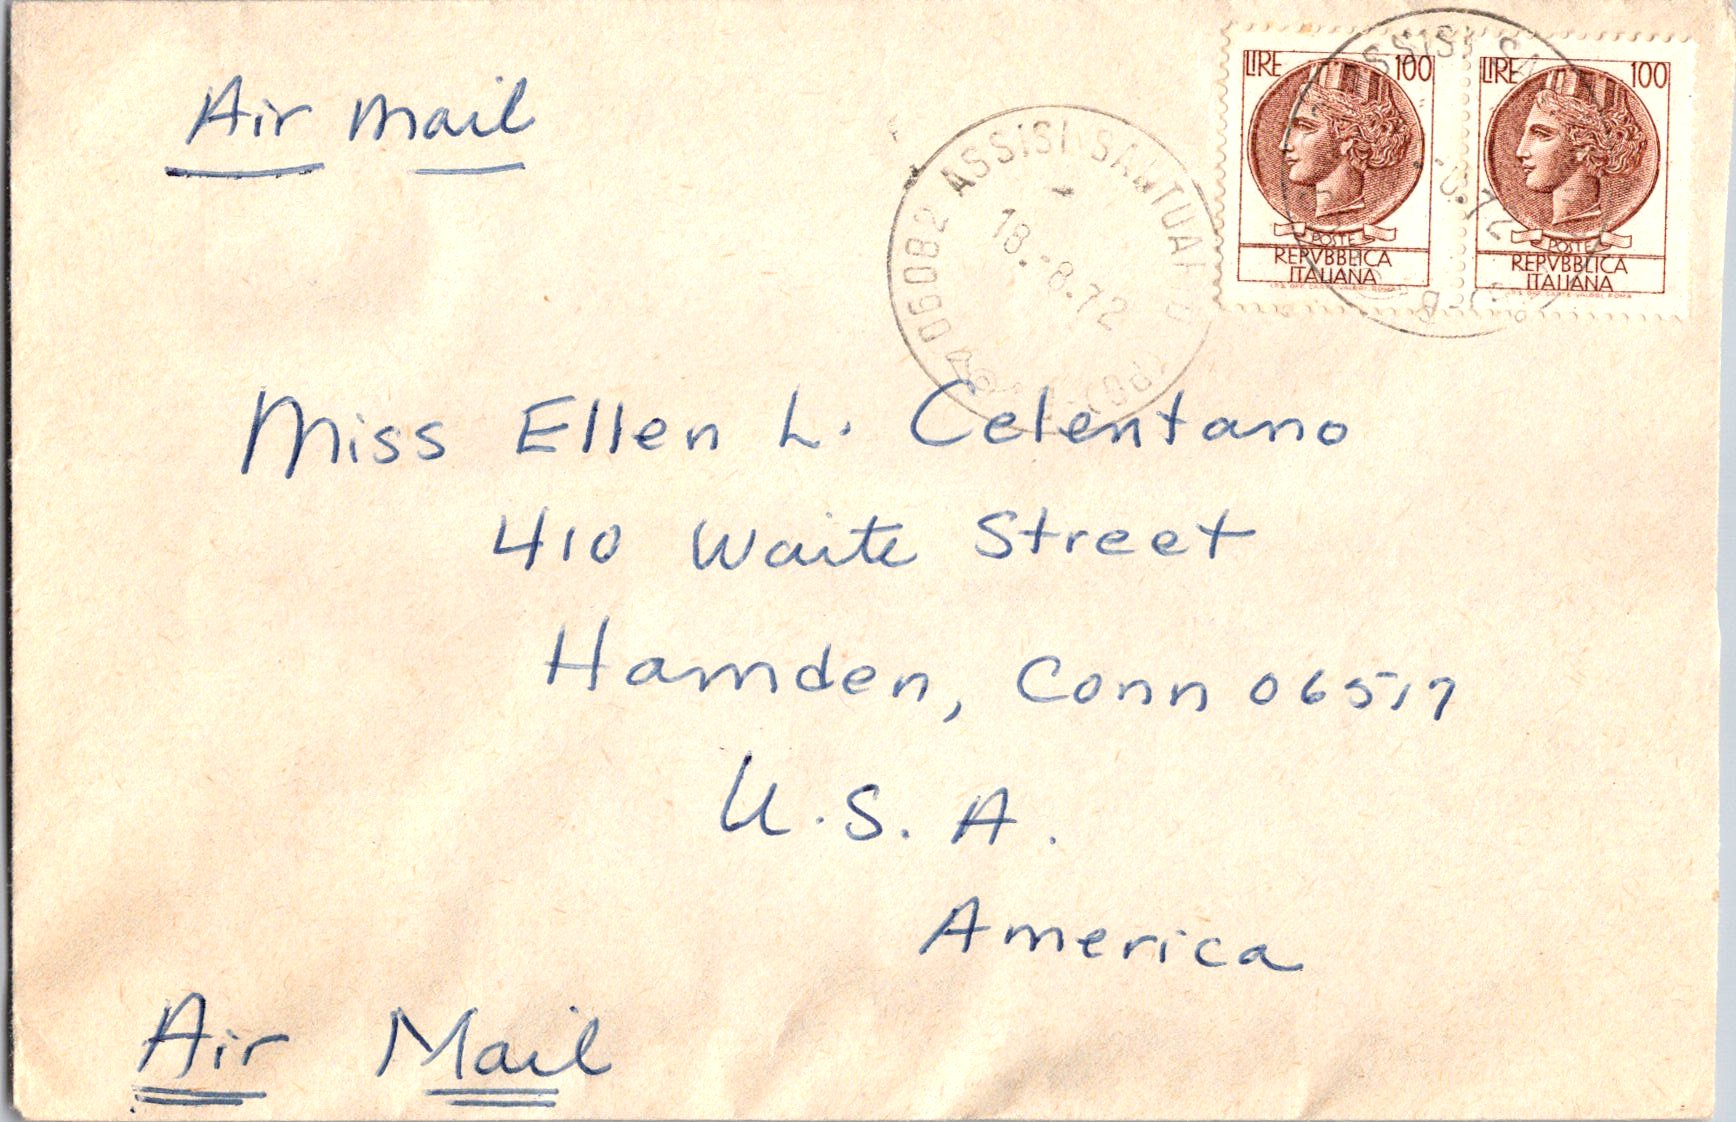 Air Mail
LIRE 100
POSTE
REPVBBLICA
ITALIANA
LIRE 100
POSTE
REPVBBLICA
ITALIANA
06082 ASSISI SANTUARIO
18.-8.72
Miss Ellen L. Celentano
410 Waite Street
Hamden, Conn 06517
U.S.A.
America
Air Mail